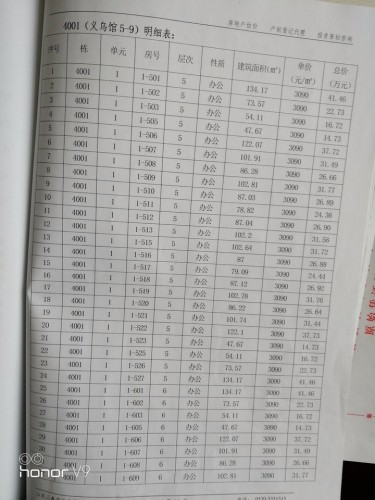 房地产估价 产权登记代理 投资策划咨询
4001（义乌馆 5-9）明细表：
序号 栋 单元 房号 层次 性质 建筑面积(㎡) 单价(元/㎡) 总价(万元)
1 4001 1 1-501 5 办公 134.17 3090 41.46
2 4001 1 1-502 5 办公 73.57 3090 22.73
3 4001 1 1-503 5 办公 54.11 3090 16.72
4 4001 1 1-505 5 办公 47.67 3090 14.73
5 4001 1 1-506 5 办公 122.07 3090 37.72
6 4001 1 1-507 5 办公 101.91 3090 31.49
7 4001 1 1-508 5 办公 86.28 3090 26.66
8 4001 1 1-509 5 办公 102.81 3090 31.77
9 4001 1 1-510 5 办公 87.03 3090 26.89
10 4001 1 1-511 5 办公 78.82 3090 24.36
11 4001 1 1-512 5 办公 87.04 3090 26.90
12 4001 1 1-513 5 办公 102.2 3090 31.58
13 4001 1 1-515 5 办公 102.64 3090 31.72
14 4001 1 1-516 5 办公 87 3090 26.88
15 4001 1 1-517 5 办公 79.09 3090 24.44
16 4001 1 1-518 5 办公 87.12 3090 26.92
17 4001 1 1-519 5 办公 102.78 3090 31.76
18 4001 1 1-520 5 办公 86.21 3090 26.64
19 4001 1 1-521 5 办公 101.74 3090 31.44
20 4001 1 1-522 5 办公 122.1 3090 37.73
21 4001 1 1-523 5 办公 47.67 3090 14.73
22 4001 1 1-525 5 办公 54.11 3090 16.72
23 4001 1 1-526 5 办公 73.57 3090 22.73
24 4001 1 5 办公 134.17 3090 41.46
25 4001 1 1-601 6 办公 134.17 3090 41.46
26 4001 1 1-602 6 办公 73.57 3090 22.73
27 4001 1 1-603 6 办公 54.11 3090 16.72
28 4001 1 1-605 6 办公 47.67 3090 14.73
29 4001 1 1-606 6 办公 122.07 3090 37.72
4001 1 1-607 6 办公 101.91 3090 31.49
4001 1 1-608 6 办公 86.28 3090 26.66
4001 1 1-609 6 办公 102.81 3090 31.77
honor V9